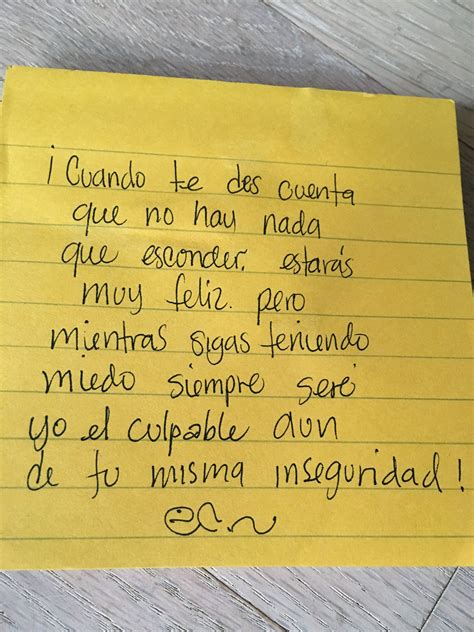 ¡Cuando te des cuenta
que no hay nada
que esconder. estarás
muy feliz. pero
mientras sigas teniendo
miedo siempre seré
yo el culpable aun
de tu misma inseguridad!